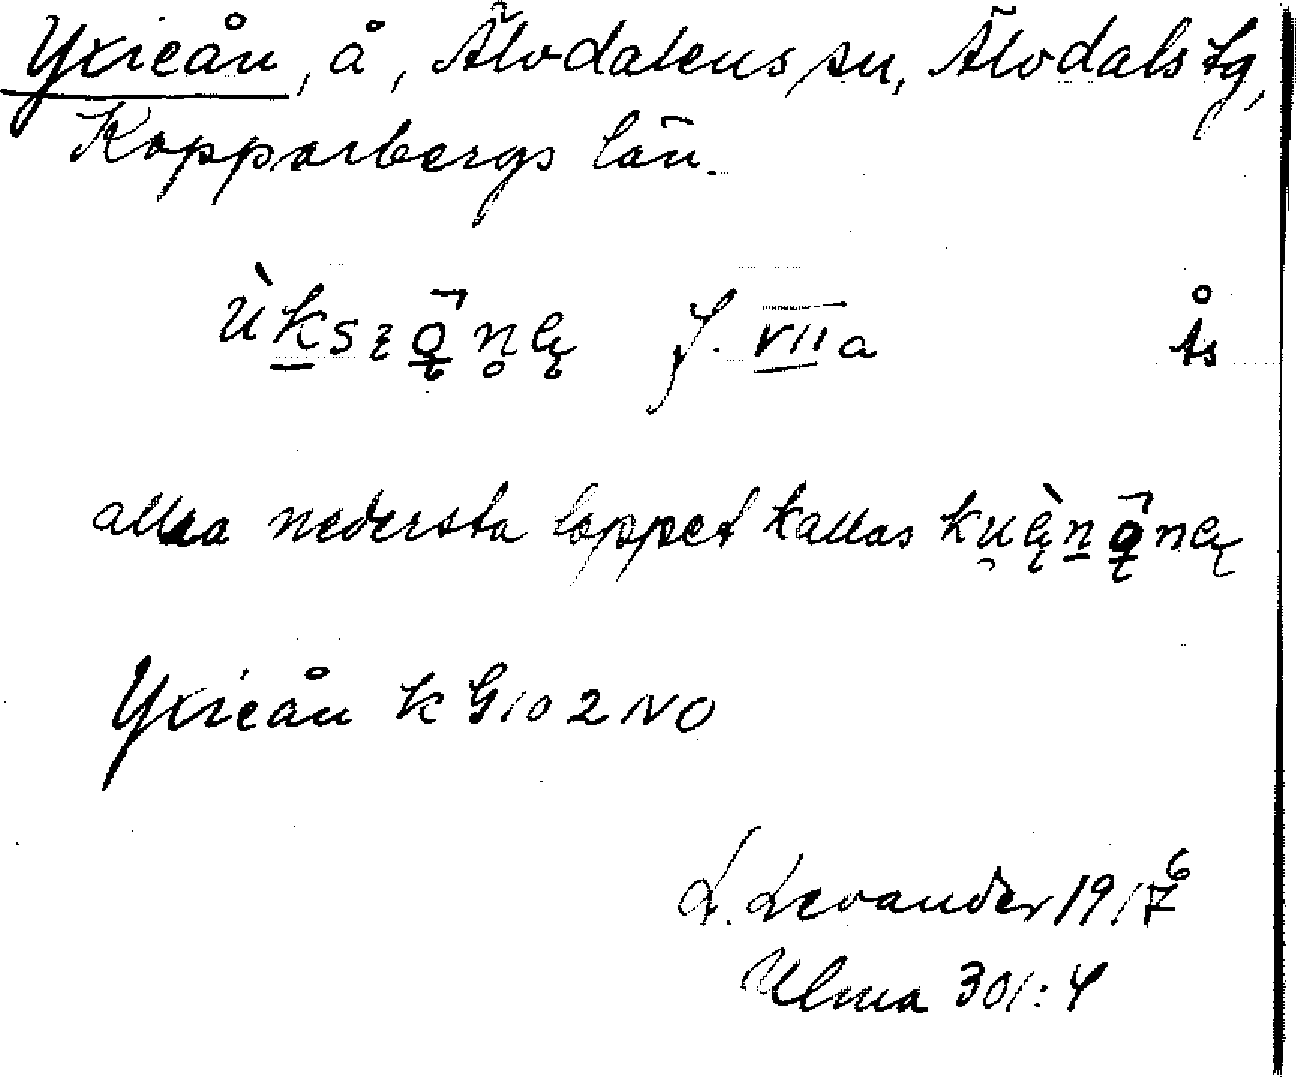 Yxieån, å, Älvdalens sn, Älvdals tg,
Kopparbergs län.
f. VII a
Ås
allra nedersta loppet kallas
Yxieån K G 10 2 NO
L. Levander 1916
Ulma 301:4